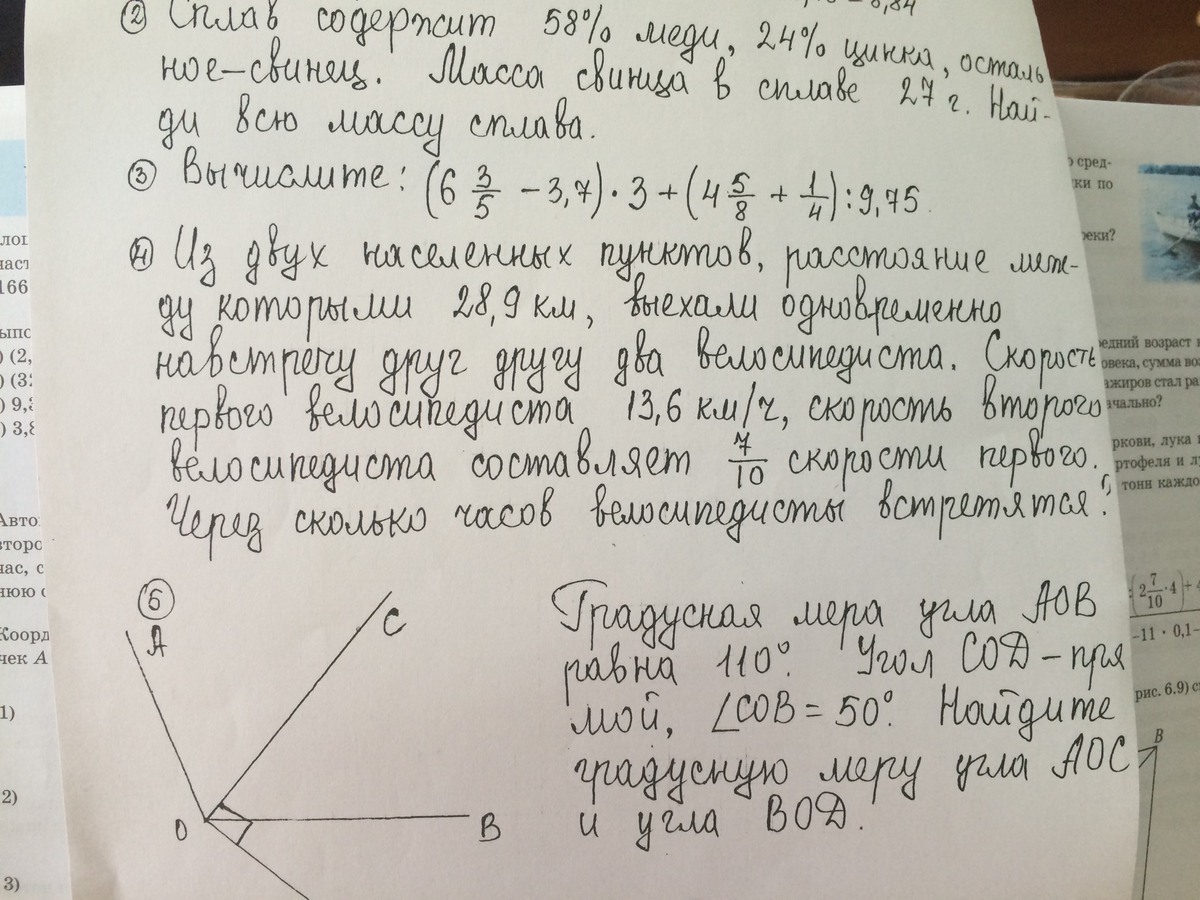 ② Сплав содержит 58% меди, 24% цинка, осталь
ное – свинец. Масса свинца в сплаве 27 г. Най-
ди всю массу сплава.
③ Вычислите: (6 3/5 − 3,7) · 3 + (4 5/8 + 1/4) : 9,75.
④ Из двух населенных пунктов, расстояние меж-
ду которыми 28,9 км, выехали одновременно
навстречу друг другу два велосипедиста. Скорость
первого велосипедиста 13,6 км/ч, скорость второго
велосипедиста составляет 7/10 скорости первого.
Через сколько часов велосипедисты встретятся?
⑤
A
C
O
B
Градусная мера угла АОВ
равна 110°. Угол СОД – пря
мой, ∠СОВ = 50°. Найдите
градусную меру угла АОС
и угла ВОД.
166
1)
2)
3)
Коорд
чек А
реки?
едний возраст
овека, сумма во
ажиров стал ра
ачально?
ркови, лука
ртофеля и л
тонн каждо
(2 7/10 · 4) +
−11 · 0,1−
рис. 6.9)
B